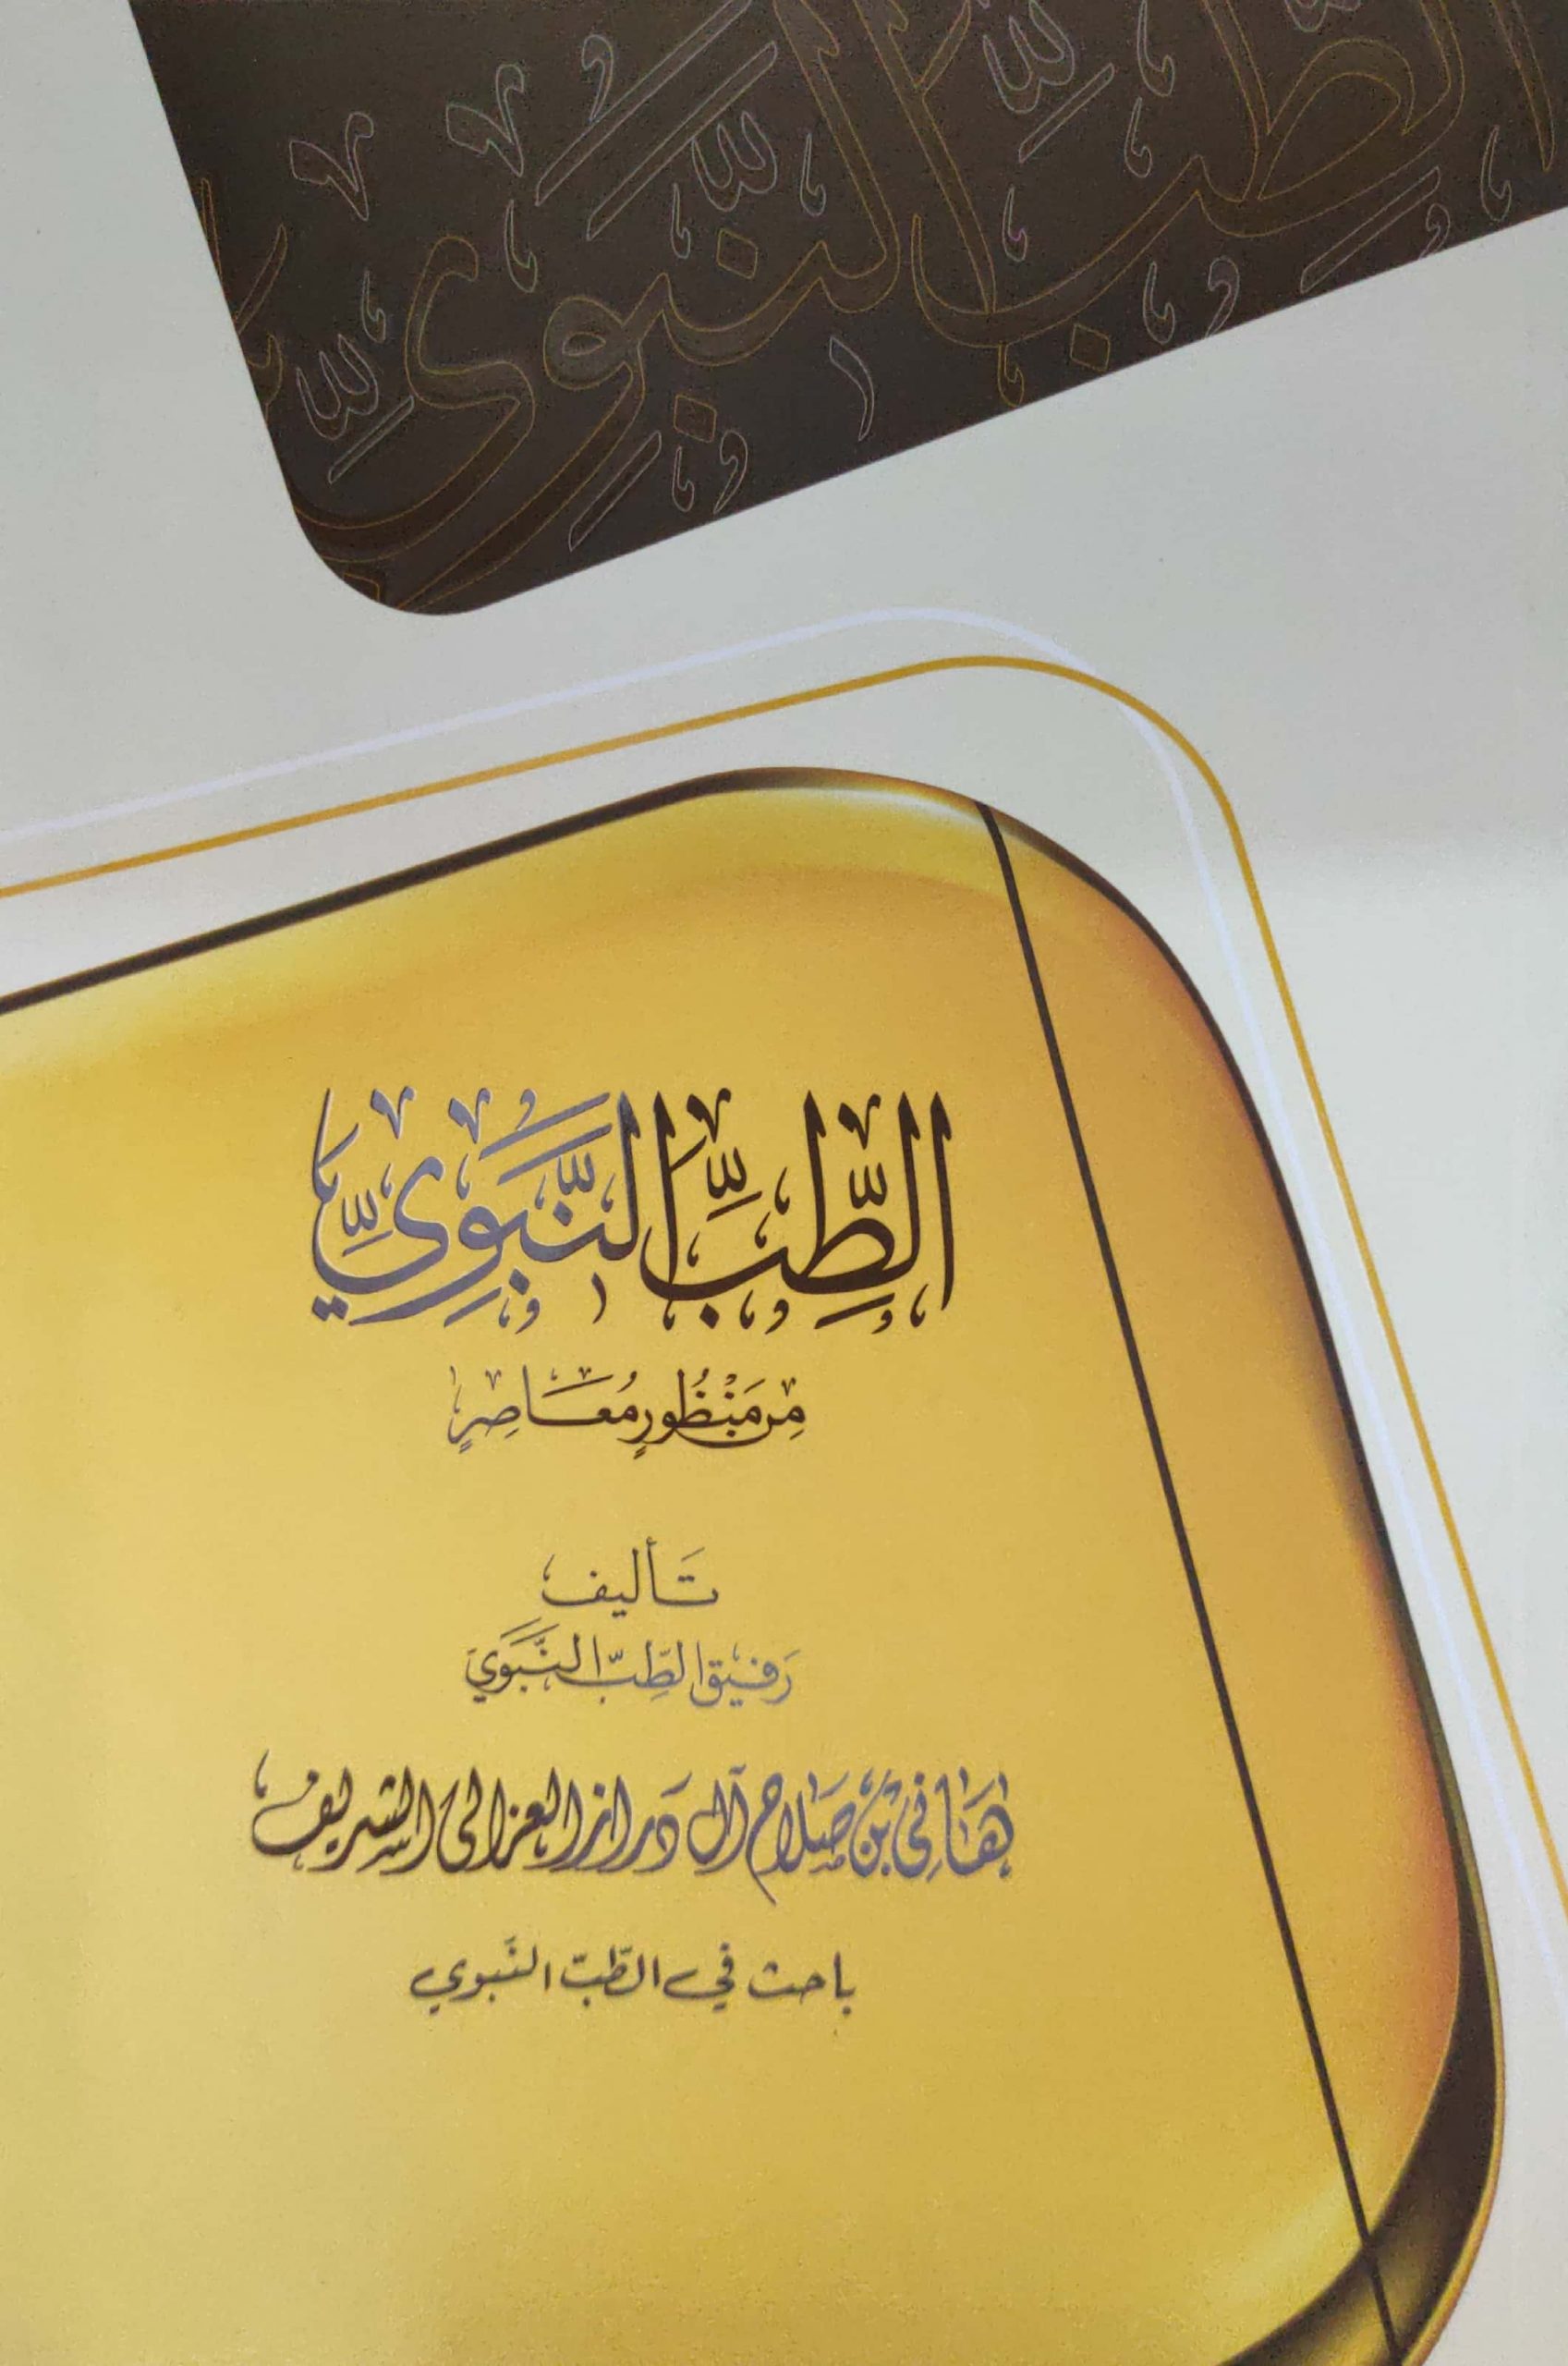 الطِّبُّ النَّبَوِيُّ
الطِّبُّ النَّبَوِيُّ
مِن مَنْظُورٍ مُعَاصِرٍ
تَأليف
رَفيق الطِّبّ النَّبَوي
هَاني بْن صَلاح آل دَراز العزالي الشريف
باحث في الطّبّ النَّبوي